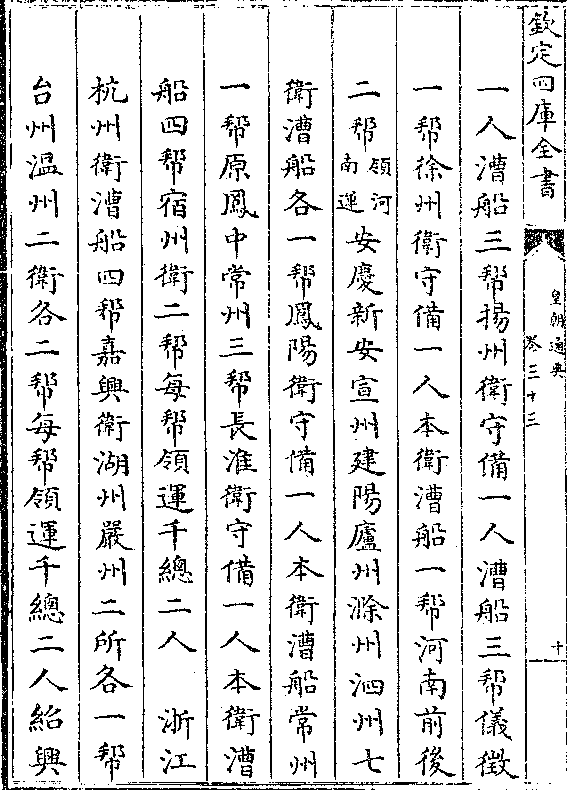 欽定四庫全書
皇朝通典
卷三十三
十
一人漕船三帮揚州衛守備一人漕船三帮儀徵
一帮徐州衛守備一人本衛漕船一帮河南前後
二帮領河南運安慶新安宣州建陽廬州滁州泗州七
衛漕船各一帮鳳陽衛守備一人本衛漕船常州
一帮原鳳中常州三帮長淮衛守備一人本衛漕
船四帮宿州衛二帮每帮領運千總二人　浙江
杭州衛漕船四帮嘉興衛湖州嚴州二所各一帮
台州溫州二衛各二帮每帮領運千總二人紹興